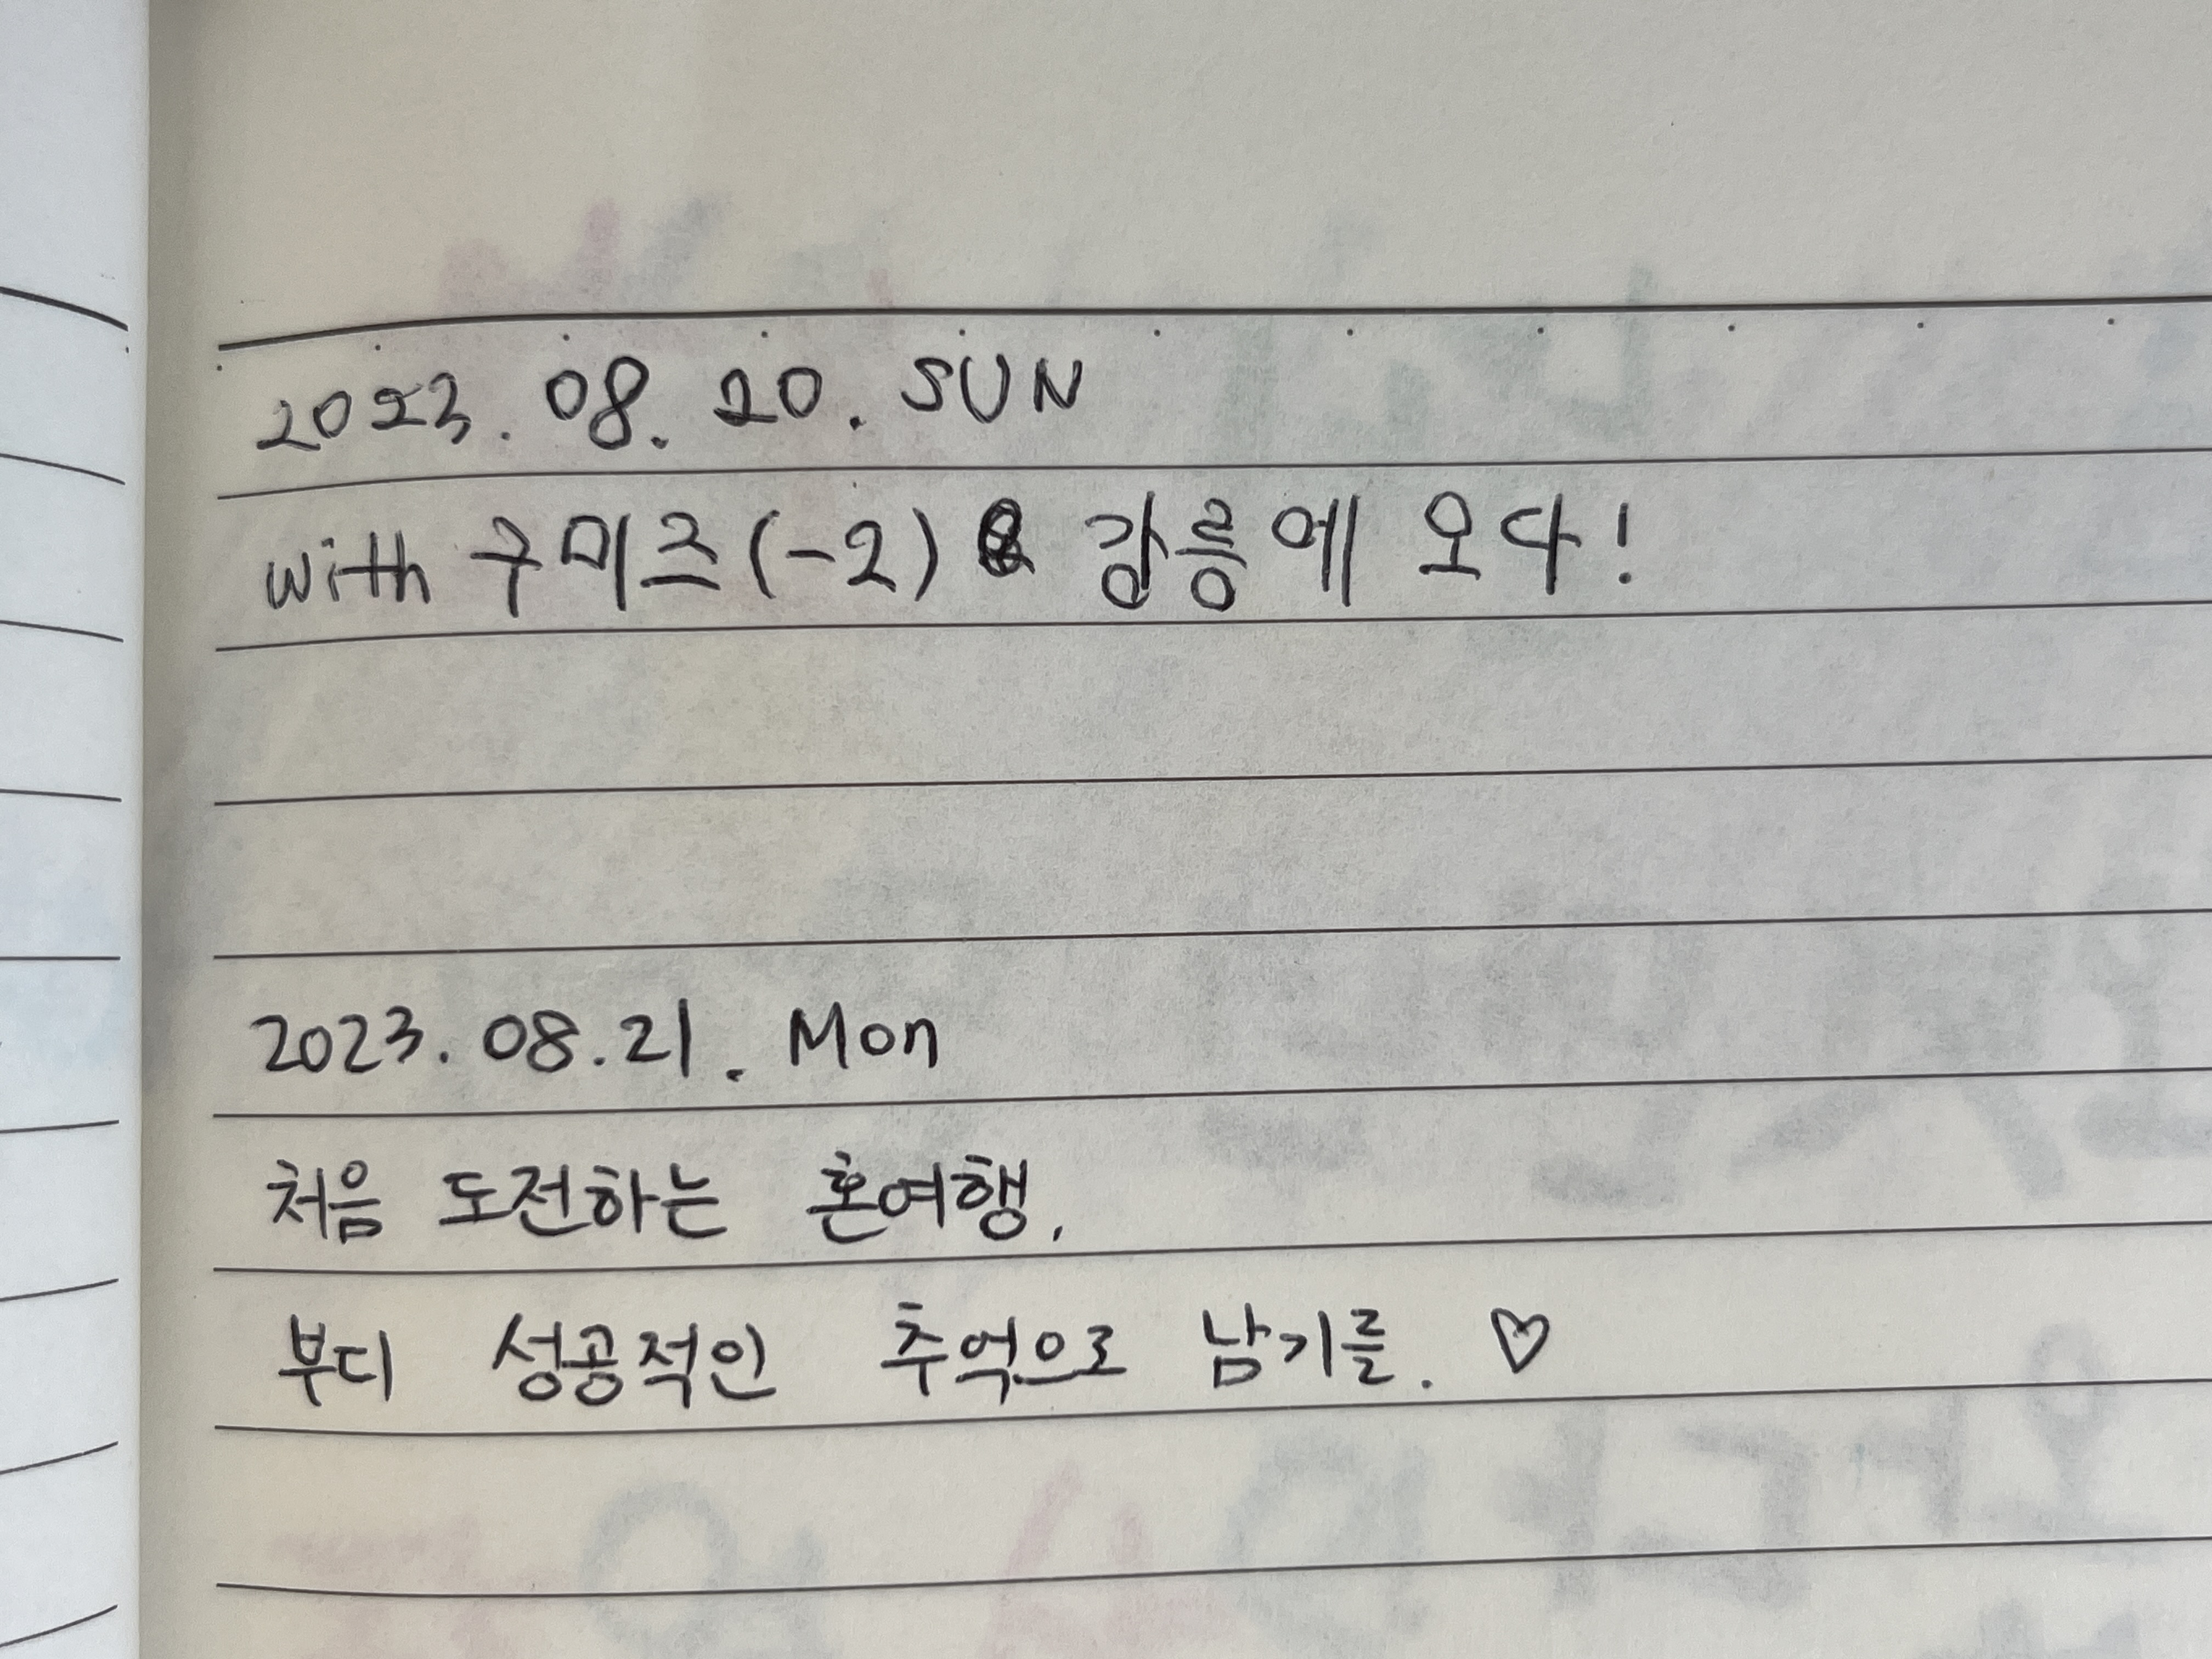 2023. 08. 20. SUN
with 구미즈(-2) 강릉에 오다!
2023. 08. 21. Mon
처음 도전하는 혼여행.
부디 성공적인 추억으로 남기를. ♡